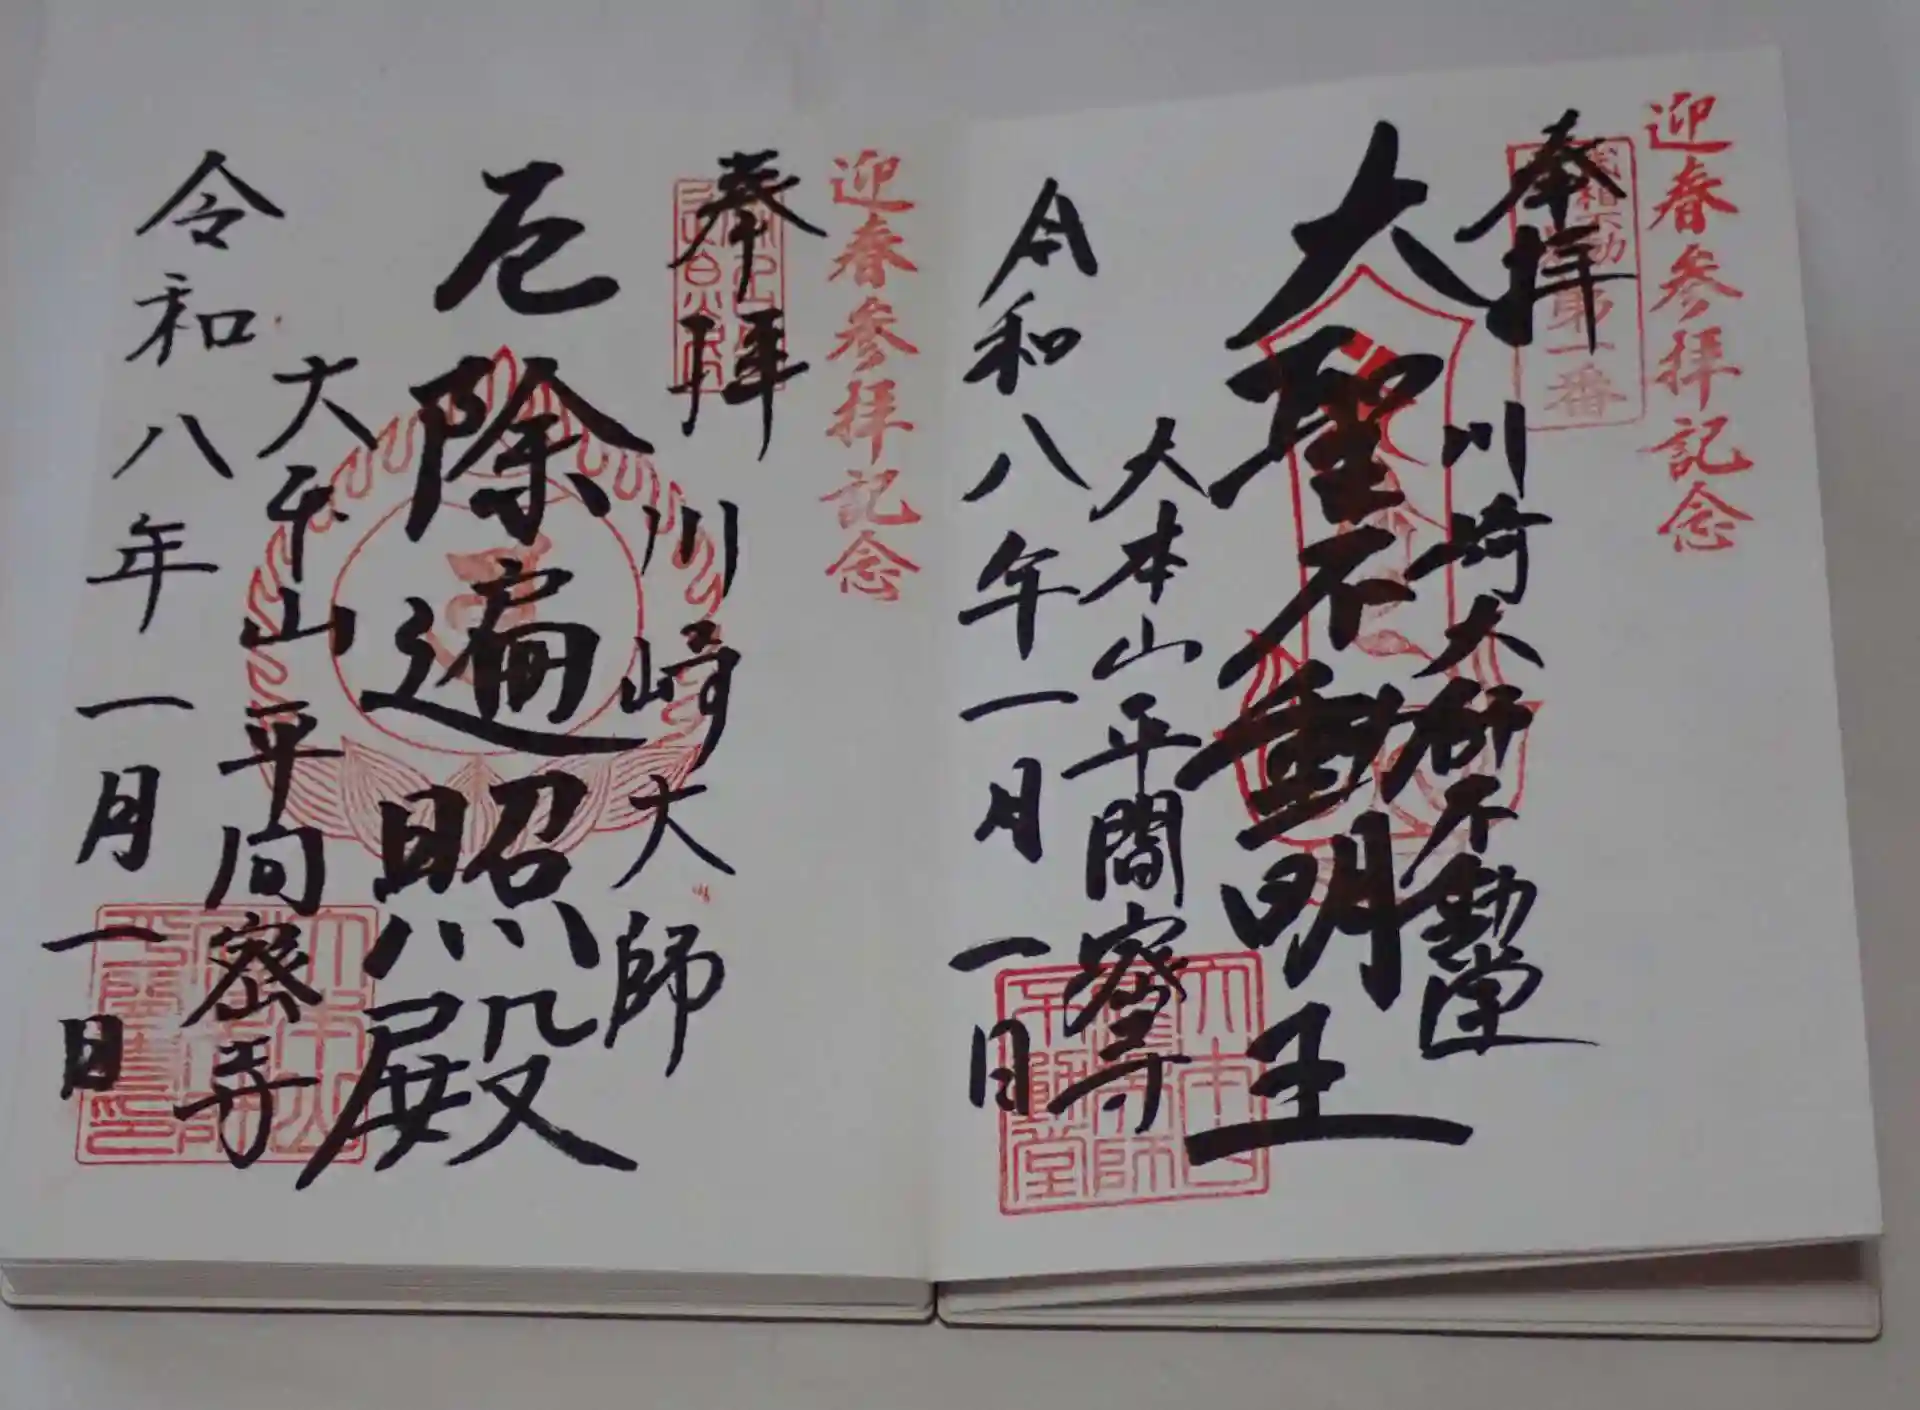 迎春参拝記念
奉拝
武相不動 第一番
川崎大師不動堂
大聖不動明王
大本山平間密寺
令和八年一月一日
迎春参拝記念
奉拝
川崎大師
厄除遍照殿
大本山平間密寺
令和八年一月一日